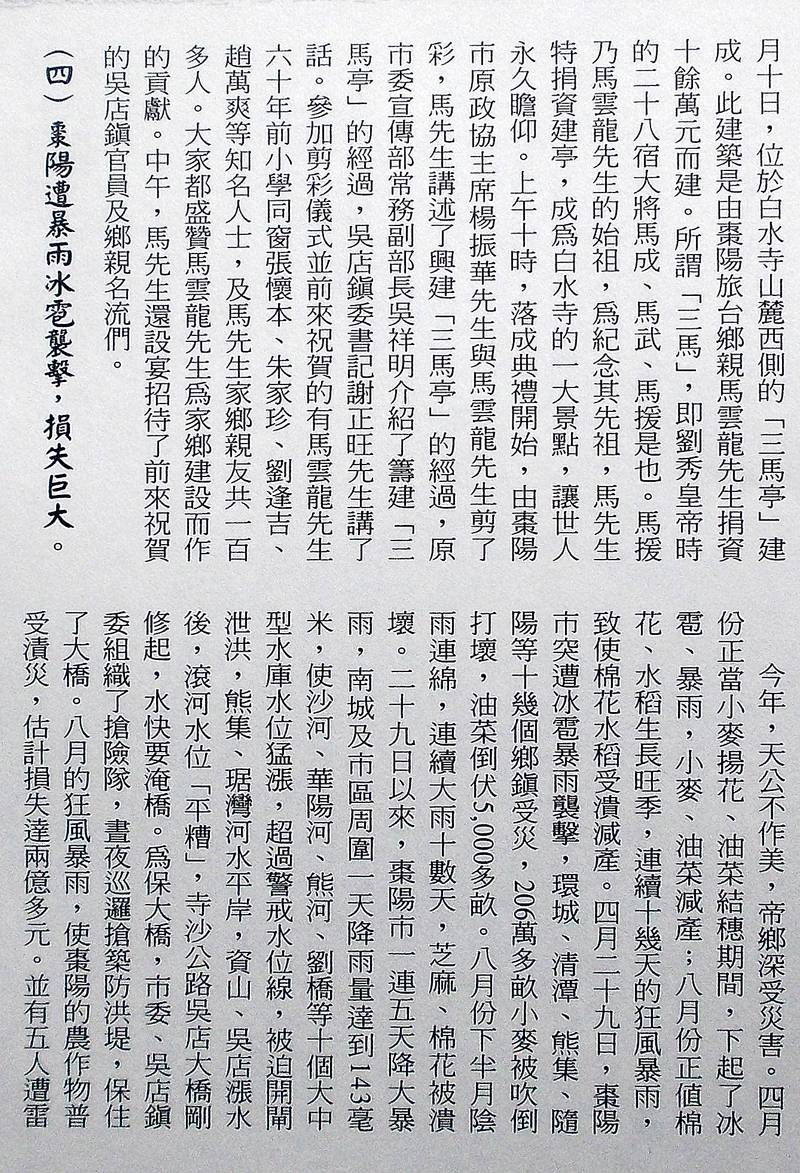 月十日，位於白水寺山麓西側的「三馬亭」建
成。此建築是由棗陽旅台鄉親馬雲龍先生捐資
十餘萬元而建。所謂「三馬」，即劉秀皇帝時
的二十八宿大將馬成、馬武、馬援是也。馬援
乃馬雲龍先生的始祖，爲紀念其先祖，馬先生
特捐資建亭，成爲白水寺的一大景點，讓世人
永久瞻仰。上午十時，落成典禮開始，由棗陽
市原政協主席楊振華先生與馬雲龍先生剪了
彩，馬先生講述了興建「三馬亭」的經過，原
市委宣傳部常務副部長吳祥明介紹了籌建「三
馬亭」的經過，吳店鎮委書記謝正旺先生講了
話。參加剪彩儀式並前來祝賀的有馬雲龍先生
六十年前小學同窗張懷本、朱家珍、劉逢吉、
趙萬爽等知名人士，及馬先生家鄉親友共一百
多人。大家都盛贊馬雲龍先生爲家鄉建設而作
的貢獻。中午，馬先生還設宴招待了前來祝賀
的吳店鎮官員及鄉親名流們。
（四）棗陽遭暴雨冰雹襲擊，損失巨大。
今年，天公不作美，帝鄉深受災害。四月
份正當小麥揚花、油菜結穗期間，下起了冰
雹、暴雨，小麥、油菜減產；八月份正值棉
花、水稻生長旺季，連續十幾天的狂風暴雨，
致使棉花水稻受潰減產。四月二十九日，棗陽
市突遭冰雹暴雨襲擊，環城、清潭、熊集、隨
陽等十幾個鄉鎮受災，206萬多畝小麥被吹倒
打壞，油菜倒伏5,000多畝。八月份下半月陰
雨連綿，連續大雨十數天，芝麻、棉花被潰
壞。二十九日以來，棗陽市一連五天降大暴
雨，南城及市區周圍一天降雨量達到143毫
米，使沙河、華陽河、熊河、劉橋等十個大中
型水庫水位猛漲，超過警戒水位線，被迫開閘
泄洪，熊集、琚灣河水平岸，資山、吳店漲水
後，滾河水位「平糟」，寺沙公路吳店大橋剛
修起，水快要淹橋。爲保大橋，市委、吳店鎮
委組織了搶險隊，晝夜巡邏搶築防洪堤，保住
了大橋。八月的狂風暴雨，使棗陽的農作物普
受漬災，估計損失達兩億多元。並有五人遭雷